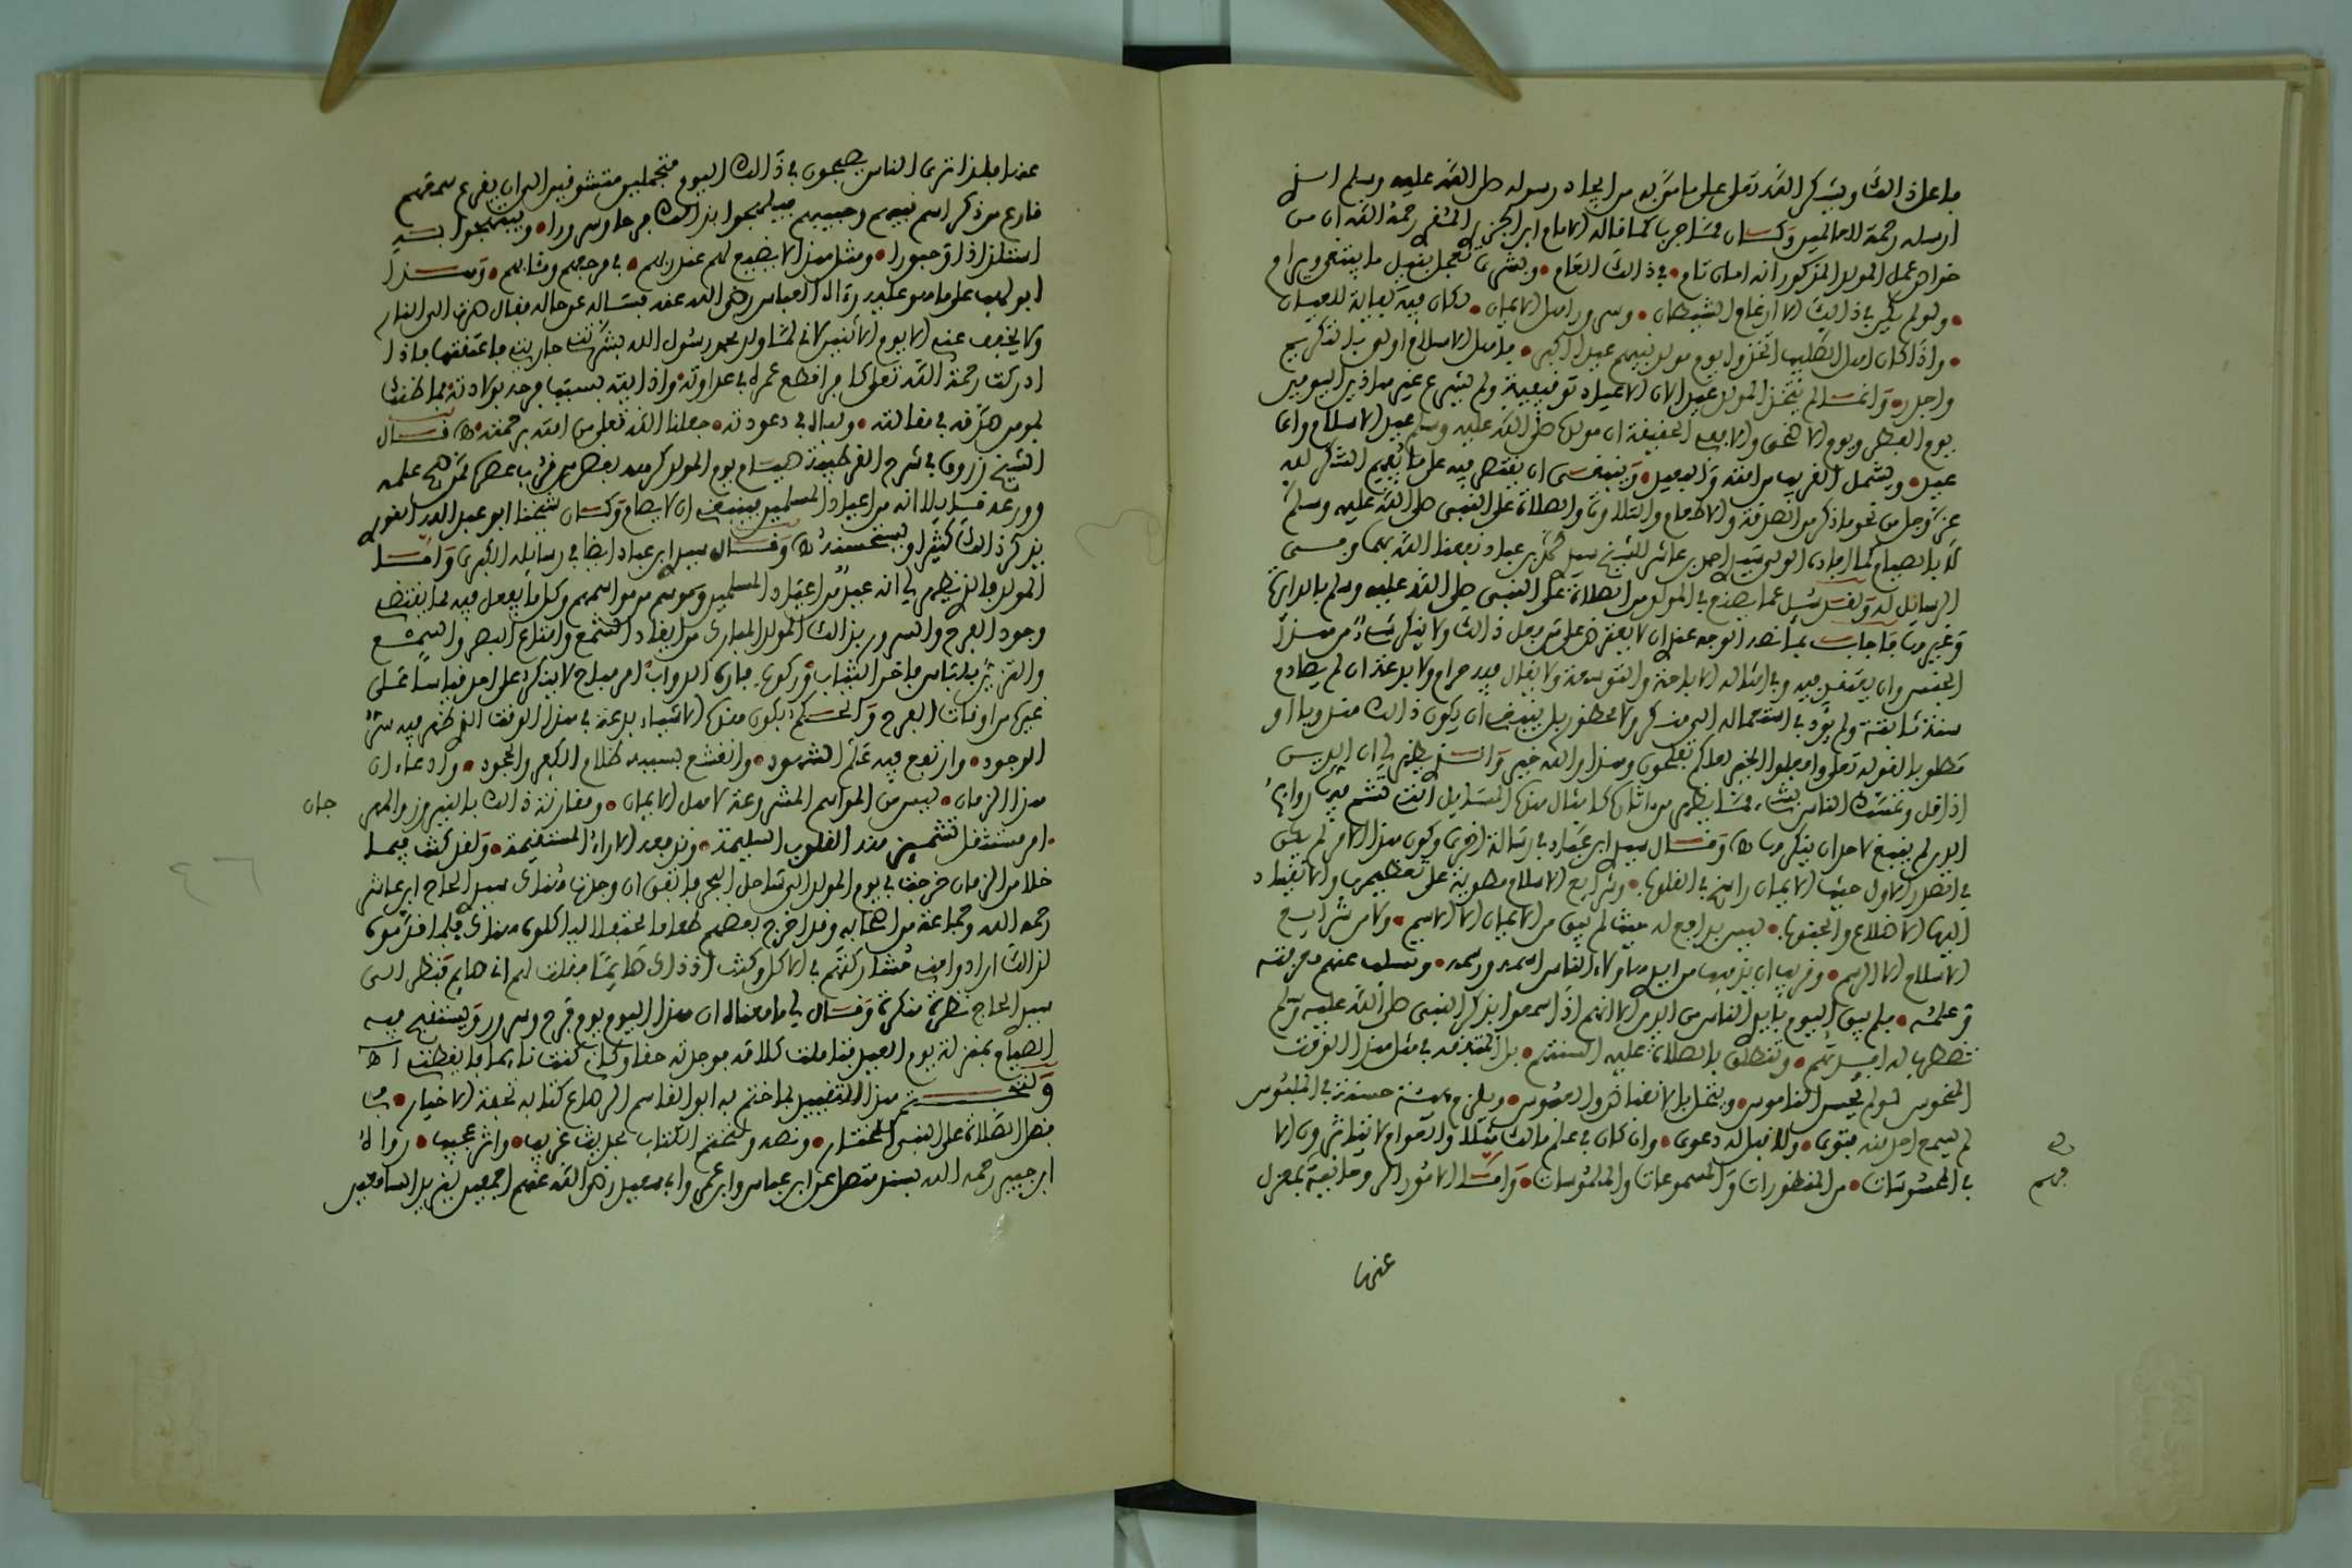 ما على ذالك ويشكر الله تعلى على ما من به من ايجاد رسوله صلى الله عليه وسلم الذى
ارسله رحمة للعالمين وكان مما جرب كما قاله الامام ابن الجزرى المقرى رحمه الله ان من
خواص عمل المولد المذكور انه امان تام • فى ذالك العام • وبشرى تعجل بنيل ما يبتغى ويرام
• ولو لم يكن فى ذالك الا ارغام الشيطان • وسرور اهل الايمان • لكان فيه كفاية للعيان
• واذا كان اهل الصليب اتخذوا يوم مولد نبيهم عيدا اكبر • فاهل الاسلام اولى بالتكريم
واجدر • وانما لم يتخذ المولد عيدا لان الاعياد توقيفية ولم يشرع غير هاذين اليومين
يوم الفطر ويوم الاضحى والا ففى الحقيقة ان مولده صلى الله عليه وسلم عيد الاسلام واى
عيد • ويشمل القريب من امته والبعيد • وينبغى ان يقتصر فيه على ما يفهم الشكر لله
عز وجل من نحو ما ذكر من الصدقة والاطعام والتلاوة والصلاة على النبى صلى الله عليه وسلم
لا بالصيام كما افاده الولى سيدى احمد بن عاشر للشيخ سيدى محمد بن عباد نفعنا الله بهما وفى
الرسايل له وقد سئل عما يصنع فى المولد من الصلاة على النبى صلى الله عليه وسلم بالدراية
وغيرها فاجاب بما نصه الوجه عندى ان لا يعترض على من فعل ذالك ولا ينكر شىء من هذا
الجنس وان يعتقد فيه وفى امثاله الاباحة والتوسعة ولا يقال فيه حرام ولا بدعة ان لم يصادم
سنة ثابتة ولم يؤد فى استعماله الى منكر ولا محظور بل ينبغى ان يكون ذالك مندوبا او
مطلوبا لقوله تعلى وافعلوا الخير لعلكم تفلحون وهذا والله خير والذى يظهر لى ان الدين
اذا قل وتمسك الناس بشىء مما يظهر من اثاره كامثال هاذه المسايل التى تشم فيها روايح
الدين لم ينبغ لاحد ان ينكرها اه وقال سيدى ابن عباد فى رسالة اخرى وكون هذا الامر لم يكن
فى الصدر الاول حيث الايمان راسخ فى القلوب • وشرايع الاسلام مطوية على تعظيمها والانقياد
اليها الاضلاع والجنوب • ليس بدافع له حيث لم يبق من الايمان الا الاسم • ولا من شرايع
الاسلام الا الرسم • وقريب ان يذهب من ايدى هاؤلاء الناس اسمه ورسمه • وتسلب عنهم معرفته
وعلمه • فلم يبق اليوم بايدى الناس من الدين الا انهم اذا سمعوا بذكر النبى صلى الله عليه وسلم
تضطرب له افئدتهم • وتنطلق بالصلاة عليه السنتهم • بل المتدين فى مثل هذا الوقت
المنحوس لو لم يحسن الناموس • ويتحل بالانقباض والعبوس • ويلزم هيئة حسنة فى الملبوس
لم يسمع احد منه فتوى • ولا قبل له دعوى • وان كان فى علم مالك مثلا والعوام لا يتاثرون الا
بالمحسوسات • من المنظورات والمسموعات والملموسات • واما الامور الروحانية بمعزل
عنها
عنها فلذا ترى الناس يصبحون فى ذالك اليوم متجملين متشوفين الى ان يقرع سمعهم
قارع من ذكر اسم نبيهم وحبيبهم فيبتهجوا بذالك فرحا وسرورا • ويبتهجوا به
استلذاذا وحبورا • ومثل هذا لا يضيع لهم عند ربهم • فى مرجعهم ومئابهم • وهذا
ابو لهب على ما هو عليه رءاه العباس رضى الله عنه فسأله عن حاله فقال صرت الى النار
ولا يخفف عنى الا يوم الاثنين لانى لما ولد محمد رسول الله بشرتنى جاريتى فاعتقتها فاذا
ادركت رحمة الله تعلى كافرا قطع عمره فى عداوته واذايته بسبب فرحه بولادته فما ظنك
بمومن صدقه فى مقالته • ولباه فى دعوته • جعلنا الله تعلى من امته برحمته اه قال
الشيخ زروق فى شرح القرطبية صيام يوم المولد كرهه بعض من قرب عصره ممن صح علمه
وورعه قايلا انه من اعياد المسلمين فينبغى ان لا يصام وكان شيخنا ابو عبد الله القورى
يذكر ذالك كثيرا ويستحسنه اه وقال سيدى ابن عباد ايضا فى رسايله الكبرى واما
المولد فالذى يظهر لى انه عيد من اعياد المسلمين وموسم من مواسمهم وكل ما يفعل فيه مما يقتضيه
وجود الفرح والسرور بذالك المولد المبارك من ايقاد الشمع وامتاع البصر والسمع
والتزين بلباس فاخر الثياب وركوب فاره الدواب امر مباح لا ينكر على احد قياسا على
غيره من اوقات الفرح والحكم بكون هاذه الاشياء بدعة فى هذا الوقت الذى ظهر فيه سر
الوجود • وارتفع فيه علم الشهود • وانقشع بسببه ظلام الكفر والجحود • وادعاء ان
هذا الزمان • ليس من المواسم المشروعة لاهل الايمان • ومقارنة ذالك بالنيروز والمهر
جان
• امر مستثقل تشمئز منه القلوب السليمة • وتدفعه الاراء المستقيمة • ولقد كنت فيما
خلا من الزمان خرجت فى يوم المولد الى ساحل البحر فاتفق ان وجدت هناك سيدى الحاج ابن عاشر
رحمه الله وجماعة من اصحابه وقد اخرج بعضهم طعاما مختلفا لياكلوه هناك فلما قدموه
لذالك ارادوا منى مشاركتهم فى الاكل وكنت اذ ذاك صايما فقلت لهم انى صايم فنظر الى
سيدى الحاج نظرة منكرة وقال لى ما معناه ان هذا اليوم يوم فرح وسرور ويستقبح فيه
الصيام بمنزلة يوم العيد فتاملت كلامه فوجدته حقا وكانى كنت نائما فايقظنى اه
ولنختم هذا التقييد بما ختم به ابو القاسم الرصاع كتابه تحفة الاخيار • فى
فضل الصلاة على النبى المختار • ونصه ولنختم الكتاب بحديث غريب • واثر عجيب • رواه
ابن حبيب رحمه الله بسند متصل عن ابن عباس وابن عمر وابى سعيد رضى الله عنهم اجمعين يزيد السامعين